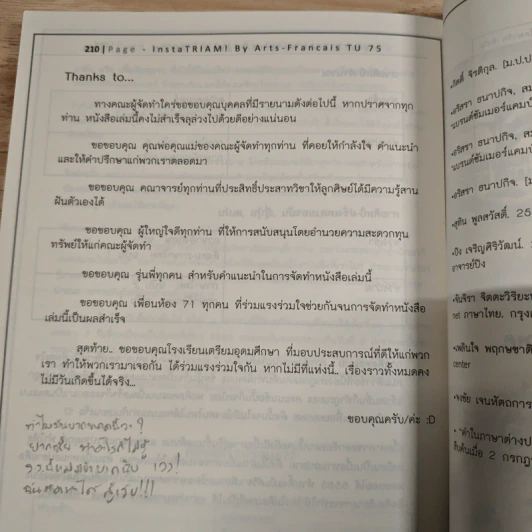 210 | Page - InstaTRIAM! By Arts-Francais TU 75
Thanks to...
ทางคณะผู้จัดทำใคร่ขอขอบคุณบุคคลที่มีรายนามดังต่อไปนี้ หากปราศจากทุก
ท่าน หนังสือเล่มนี้คงไม่สำเร็จลุล่วงไปด้วยดีอย่างแน่นอน
ขอขอบคุณ คุณพ่อคุณแม่ของคณะผู้จัดทำทุกท่าน ที่คอยให้กำลังใจ คำแนะนำ
และให้คำปรึกษาแก่พวกเราตลอดมา
ขอขอบคุณ คณาจารย์ทุกท่านที่ประสิทธิ์ประสาทวิชาให้ลูกศิษย์ได้มีความรู้สาน
ฝันตัวเองได้
ขอขอบคุณ ผู้ใหญ่ใจดีทุกท่าน ที่ให้การสนับสนุนโดยอำนวยความสะดวกทุน
ทรัพย์ให้แก่คณะผู้จัดทำ
ขอขอบคุณ รุ่นพี่ทุกคน สำหรับคำแนะนำในการจัดทำหนังสือเล่มนี้
ขอขอบคุณ เพื่อนห้อง 71 ทุกคน ที่ร่วมแรงร่วมใจช่วยกันจนการจัดทำหนังสือ
เล่มนี้เป็นผลสำเร็จ
สุดท้าย.. ขอขอบคุณโรงเรียนเตรียมอุดมศึกษา ที่มอบประสบการณ์ที่ดีให้แก่พวก
เรา ทำให้พวกเรามาเจอกัน ได้ร่วมแรงร่วมใจกัน หากไม่มีที่แห่งนี้.. เรื่องราวทั้งหมดคง
ไม่มีวันเกิดขึ้นได้จริง...
ขอบคุณครับ/ค่ะ :D
จิรติกุล. [ม.ป.ป
ธนาปกิจ, สม
แบรนด์ซัมเมอร์แคมป์
ธนาปกิจ, สม
แบรนด์ซัมเมอร์แคมป์
ธนาปกิจ. [ม
พูลสวัสดิ์. 25
เจริญศิริวัฒน์.
อาจารย์ปิง
จิตตะวิริยะ
net ภาษาไทย. กรุงเ
พฤกษชาติ
center
เจนหัตถการ
"คำในภาษาต่างป
เมื่อ 2 กรกฎ